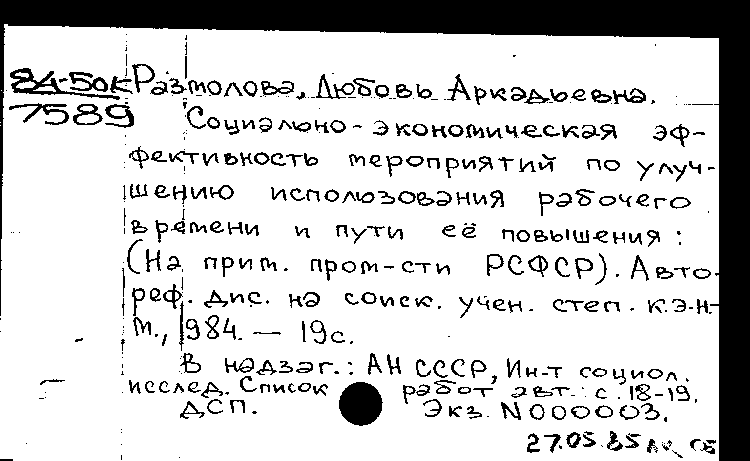 84-50к Размолова, Любовь Аркадьевна.
7589 Социально-экономическая эф-
фективность мероприятий по улуч-
шению использования рабочего
времени и пути её повышения:
(На прим. пром-сти РСФСР). Авто-
реф. дис. на соиск. учен. степ. к.э.н.-
М., 1984. — 19с.
В надзаг.: АН СССР, Ин-т социол.
исслед. Список работ авт.: с.18-19.
ДСП. Экз. N000003.
27.05.85